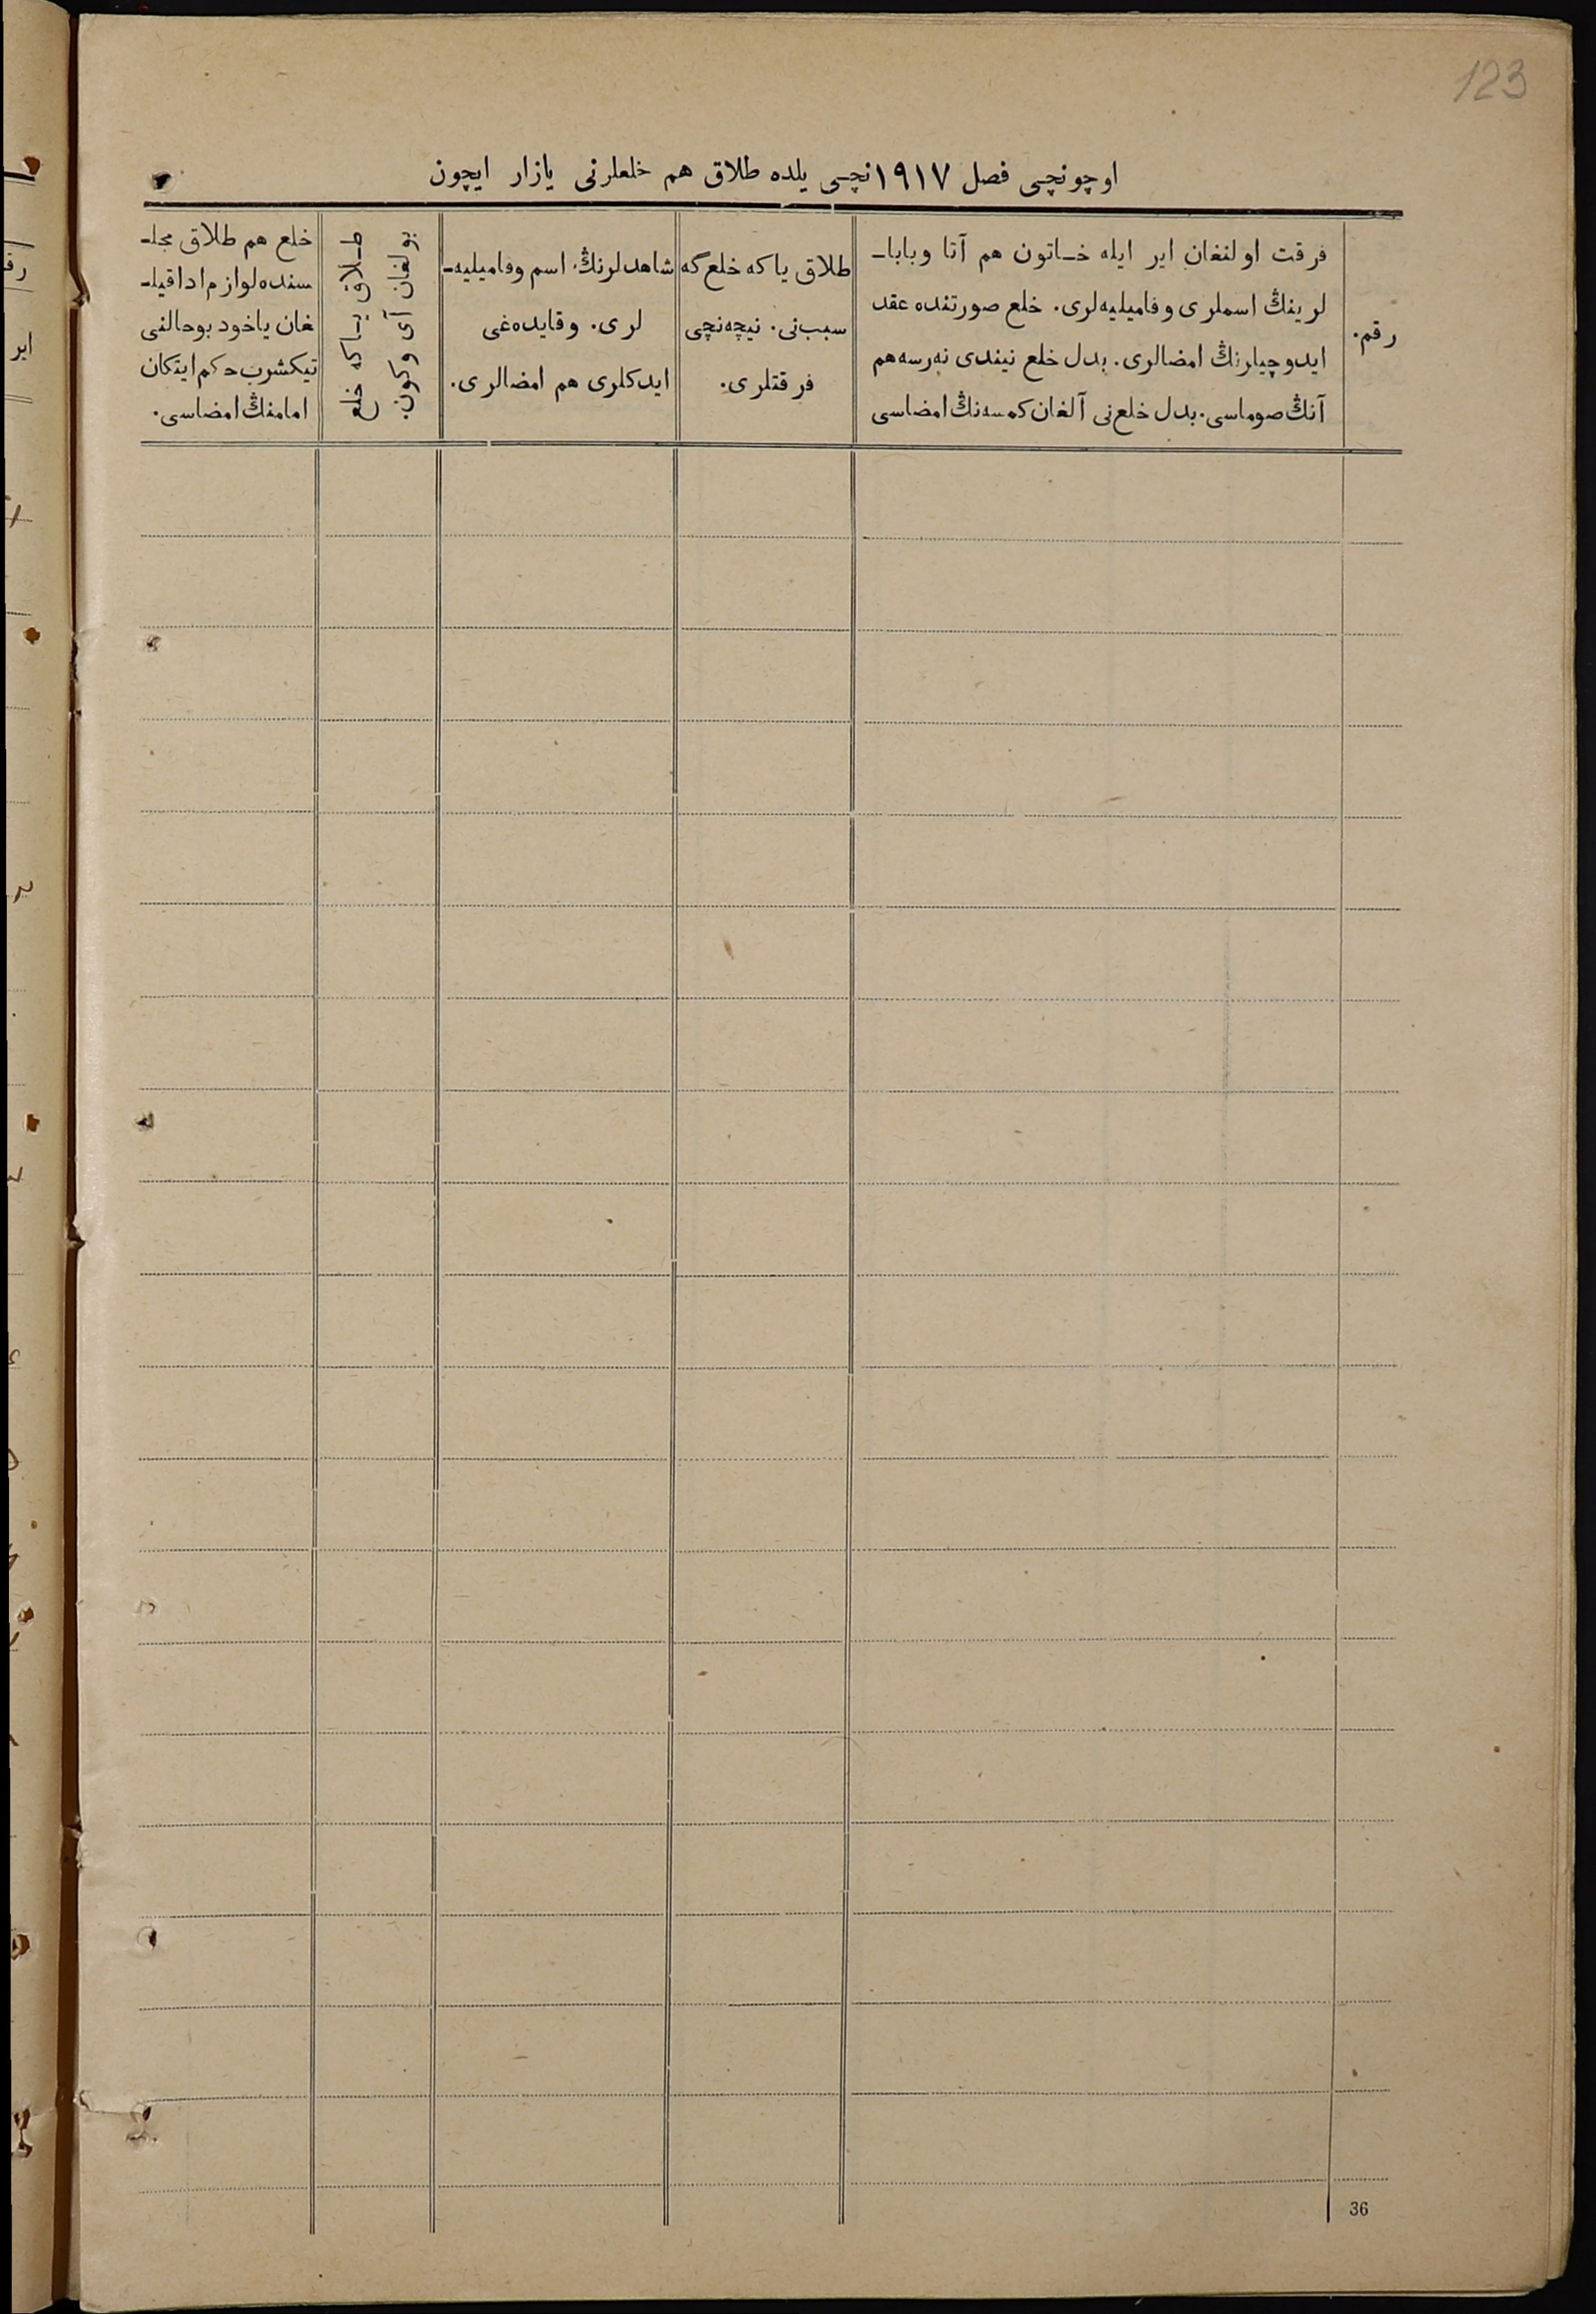 123
اوچونچی فصل ١٩١٧نچی یلده طلاق هم خلعلرنی یازار ایچون
رقم.
فرقت اولنغان ایر ایله خـاتون هم آتا وبابا-
لرینڭ اسملری وفامیلیه‌لری. خلع صورتنده عقد
ایدوچیلرنڭ امضالری. بدل خلع نیندی نه‌رسه هم
آنڭ صوماسی. بدل خلع‌نی آلغان کمسه‌نڭ امضاسی
طلاق یاکه خلع گه
سبب‌نی. نیچه‌نچی
فرقتلری.
شاهدلرنڭ اسم وفامیلیه-
لری. وقایده‌غی
ایدکلری هم امضالری.
طـلاق یـاکه خلع
بولغان آی وکون.
خلع هم طلاق مجلـ
سنده لوازم ادا قیلـ
غان یاخود بوحالنی
تیکشرب حکم ایتکان
امامنڭ امضاسی.
36
رقـ
ایر